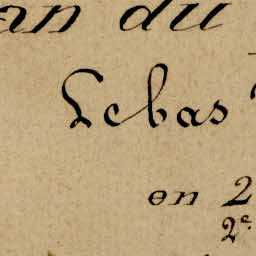 an du
Lebas
en 2
2e